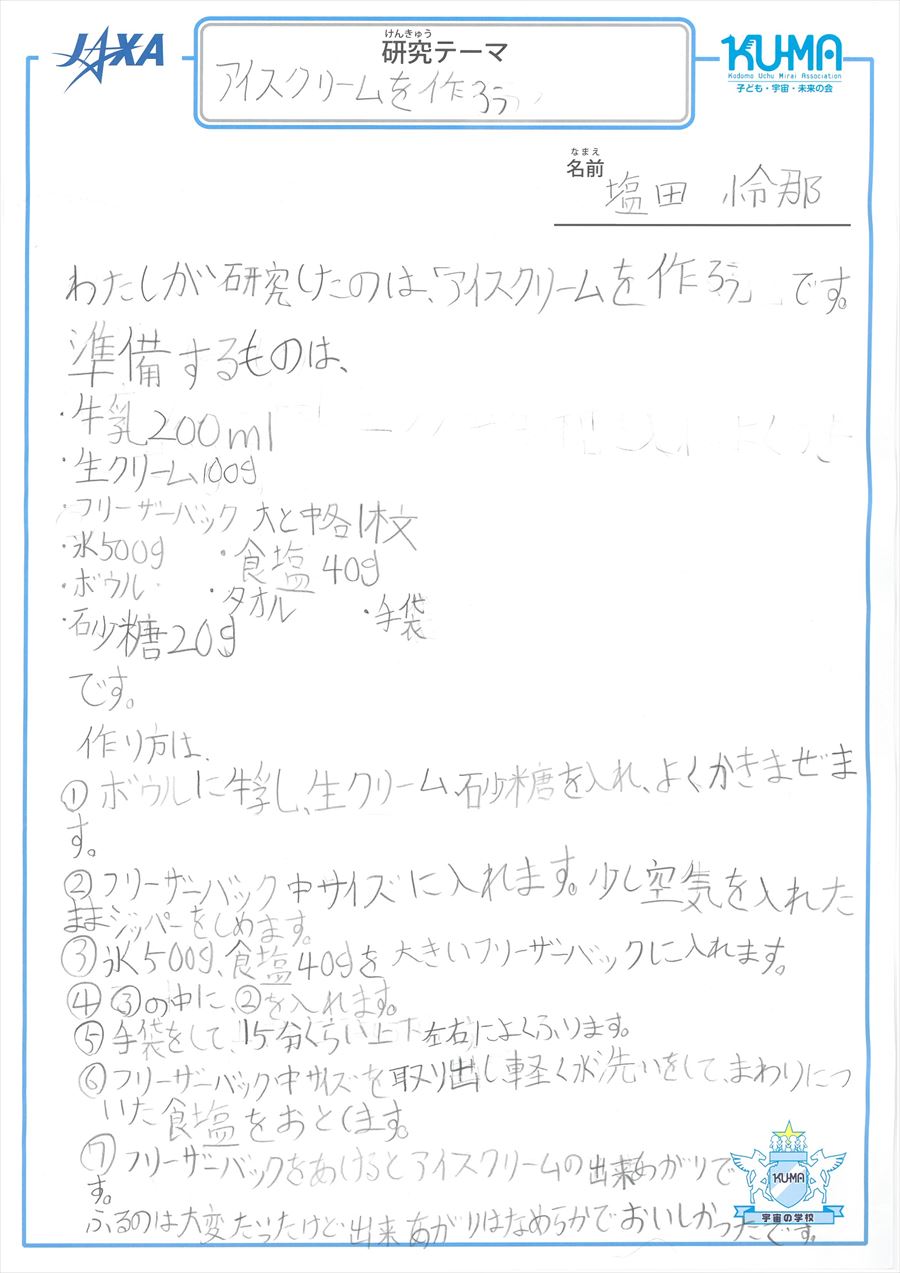 JAXA
けんきゅう
研究テーマ
アイスクリームを作ろう
KU-MA
Kodomo Uchu Mirai Association
子ども・宇宙・未来の会
なまえ
名前
塩田 怜那
わたしが研究したのは、「アイスクリームを作ろう」です。
準備するものは、
・牛乳200ml
・生クリーム100g
・フリーザーバック 大と中各1枚
・氷500g ・食塩40g
・ボウル ・タオル ・手袋
・砂糖20g
です。
作り方は、
①ボウルに牛乳し、生クリーム、砂糖を入れ、よくかきまぜま
す。
②フリーザーバック中サイズに入れます。少し空気を入れた
ままジッパーをしめます。
③氷500g、食塩40gを大きいフリーザーバックに入れます。
④③の中に、②を入れます。
⑤手袋をして、15分くらい上下左右によくふります。
⑥フリーザーバック中サイズを取り出し軽く水洗いをして、まわりにつ
いた食塩をおとします。
⑦フリーザーバックをあけるとアイスクリームの出来あがりで
す。
ふるのは大変だったけど出来あがりはなめらかでおいしかったです。
KU-MA
宇宙の学校